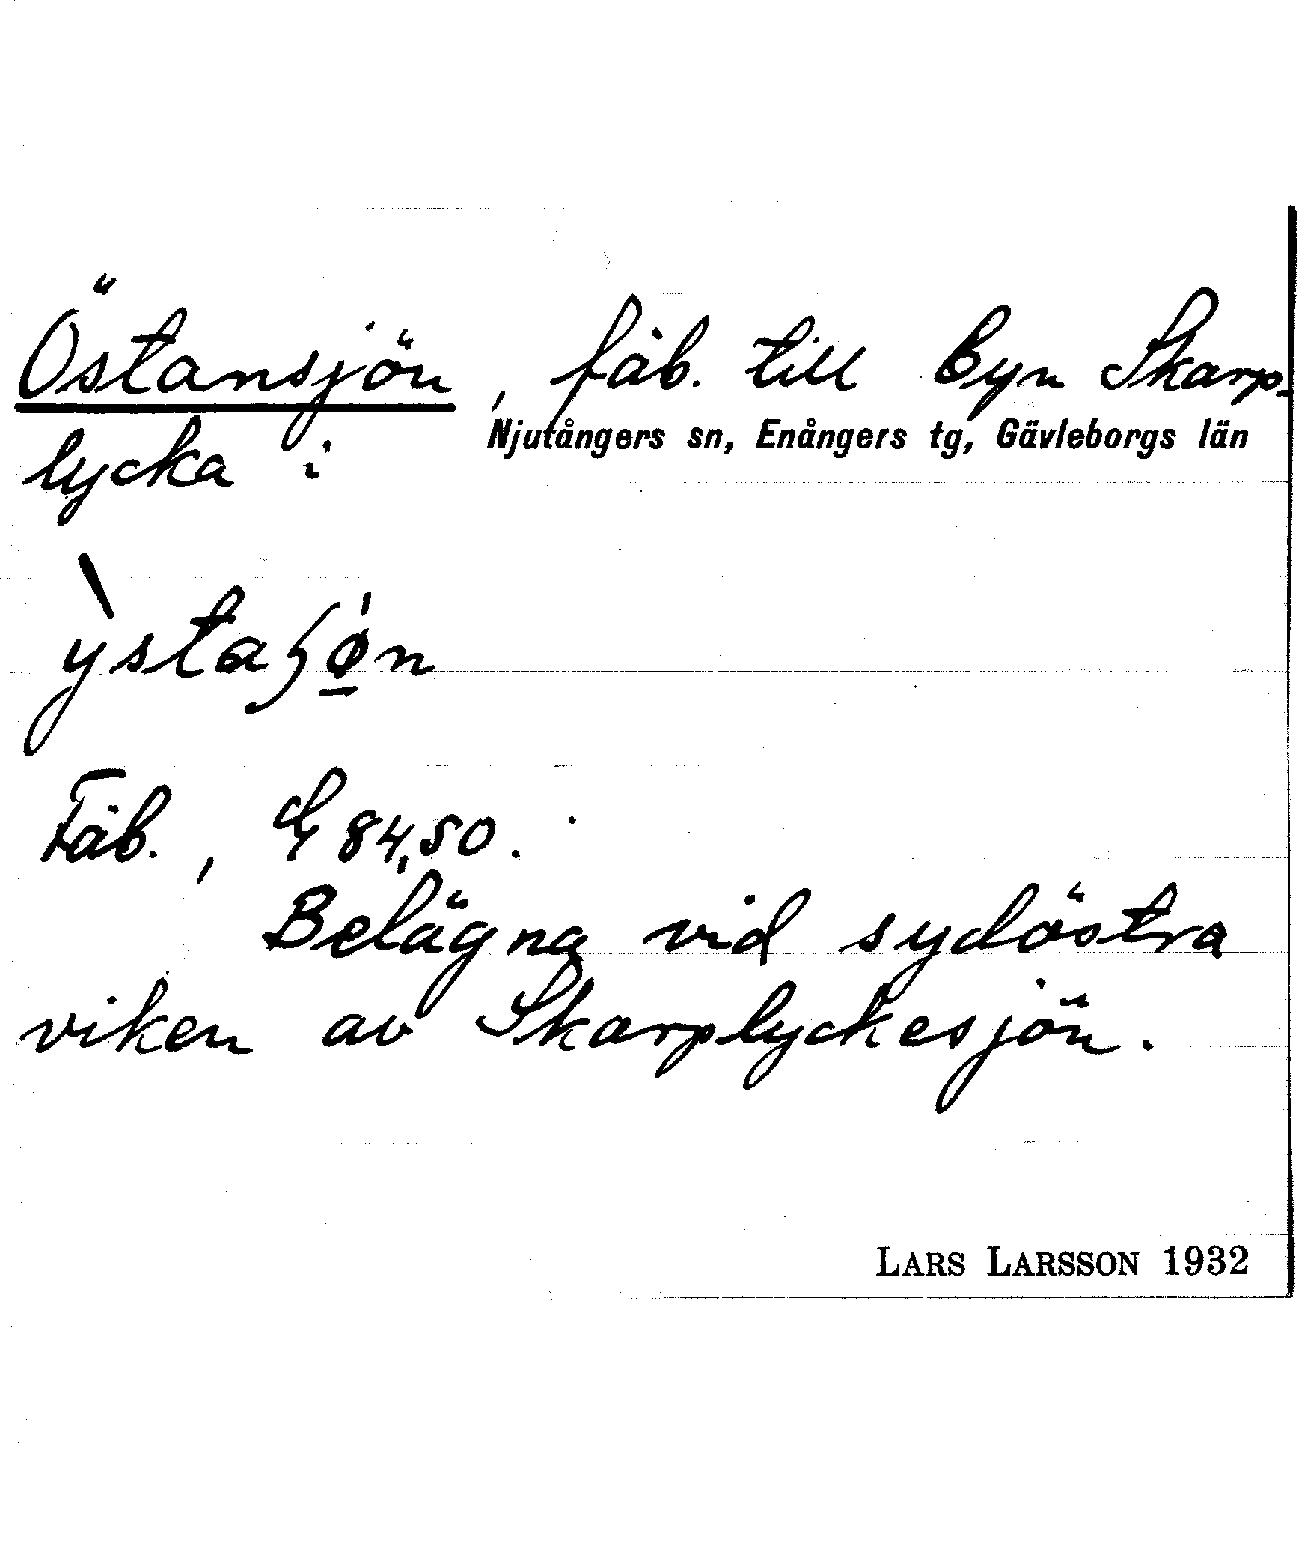 Östansjön, fäb. till byn Skarp-
lycka i
Njutångers sn, Enångers tg, Gävleborgs län
ỳstaʃǿ̲n
Fäb., 84,50.
Belägna vid sydöstra
viken av Skarplyckesjön.
LARS LARSSON 1932